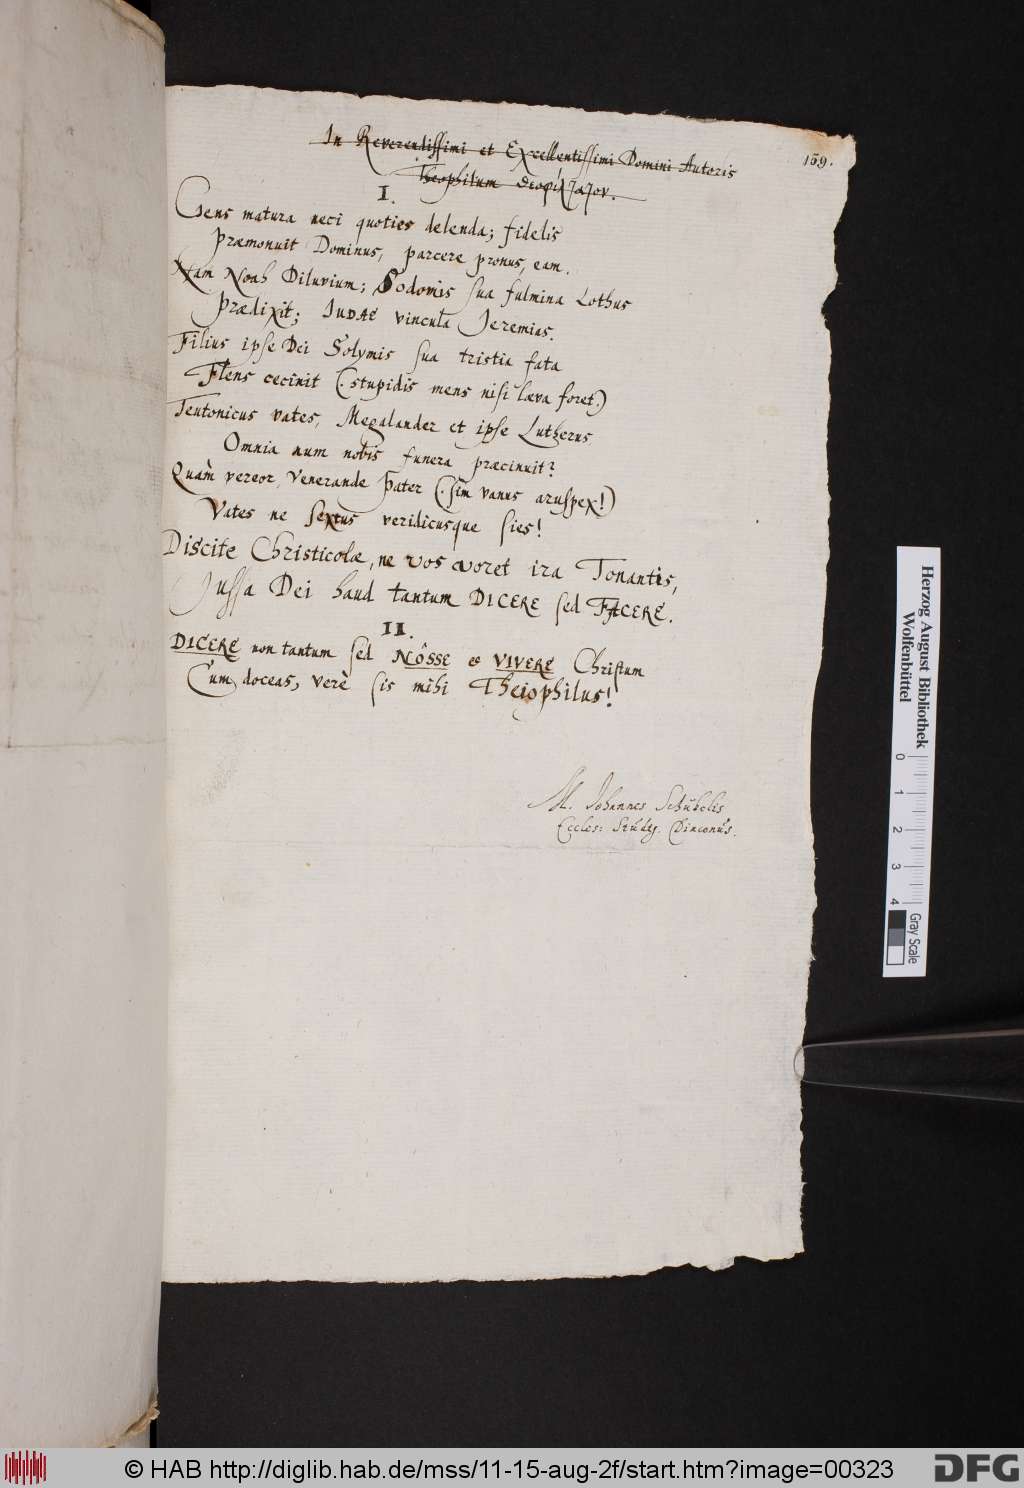 159.
In Reverendissimi et Excellentissimi Domini Autoris
Theophilum
I.
Gens matura neci quoties delenda; fidelis
Præmonuit Dominus, parcere pronus, eam.
Nam Noah Diluvium; Sodomis sua fulmina Lothus
Prædixit; IUDAE vincula Jeremias.
Filius ipse Dei Solymis sua tristia fata
Flens cecinit (stupidis mens nisi læva foret.)
Teutonicus vates, Megalander et ipse Lutherus
Omnia num nobis funera præcinuit?
Quàm vereor, Venerande Pater (sim vanus aruspex!)
Vates ne sextus veridicusque sies!
Discite Christicolæ, ne vos voret ira Tonantis,
Jussa Dei haud tantum DICERE sed FACERE.
II.
DICERE non tantum sed NÔSSE et VIVERE Christum
Cum doceas, verè sis mihi Theiophilus!
M. Johannes Schübelis
Eccles: Diaconus.
Herzog August Bibliothek
Wolfenbüttel
0 1 2 3 4
Gray Scale
© HAB http://diglib.hab.de/mss/11-15-aug-2f/start.htm?image=00323
DFG